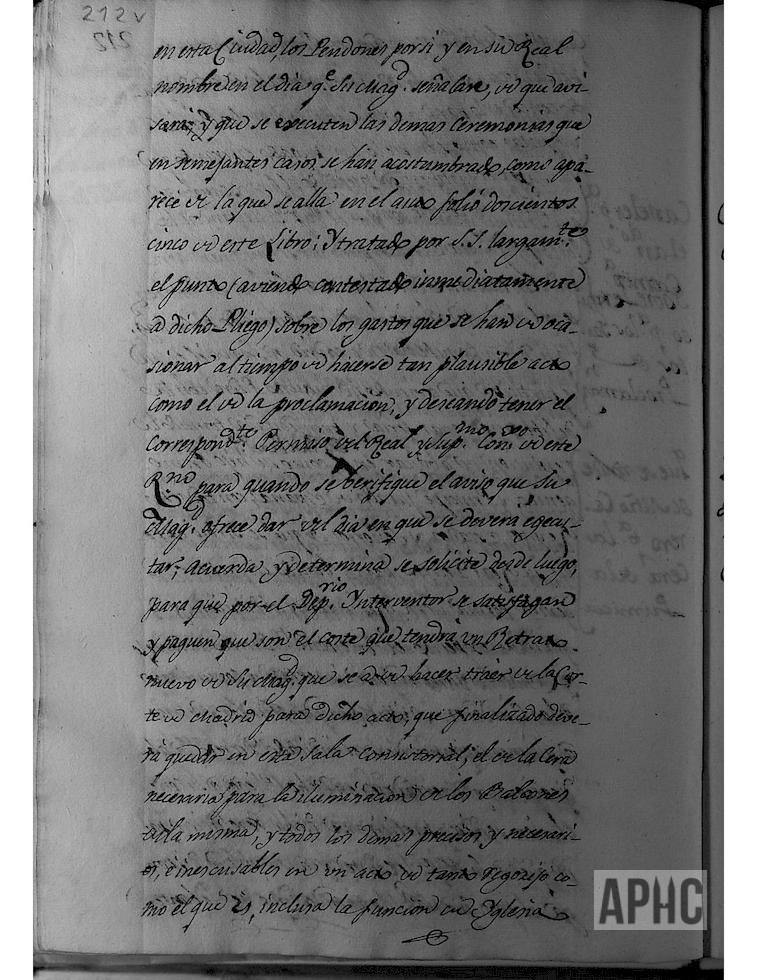 212v
en esta Ciudad, los Pendones por si y en su Real
nombre en el dia q.e Su Mag.d señalare, de que avi-
sará; y que se executen las demas Ceremonias que
en semejantes casos se han acostumbrado, como apa-
rece de la que se alla en el auto folio doscientos
cinco de este Libro: Y tratado por S.S. largam.te
el punto (aviendo contestado inmediatamente
a dicho Pliego) sobre los gastos que se han de oca-
sionar al tiempo de hacerse tan plausible acto
como el de la proclamacion, y deseando tener el
correspond.te Permiso del Real y Sup.mo Con.xo de este
R.no para quando se berifique el aviso que Su
Mag.d ofrece dar del dia en que se devera egecu-
tar; acuerda y determina se solicite desde luego,
para que por el Dep.rio Ynterventor se satisfagan
y paguen que son el coste que tendrá un Retrato
nuevo de Su Mag.d que se a de hacer traer de la Cor-
te de Madrid para dicho acto, que finalizado deve-
rá quedar en esta Sala Consistorial; el de la Cera
necesaria para la iluminacion de los Balcones
de la misma, y todos los demas precisos y necesari-
os, e inescusables en un acto de tanto regocijo co-
mo el que es, inclusa la funcion de Yglesia
APHC